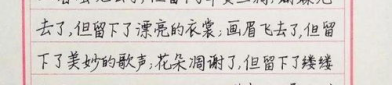 去了,但留下了漂亮的衣裳;画眉飞去了,但留
下了美妙的歌声;花朵凋谢了,但留下了缕缕